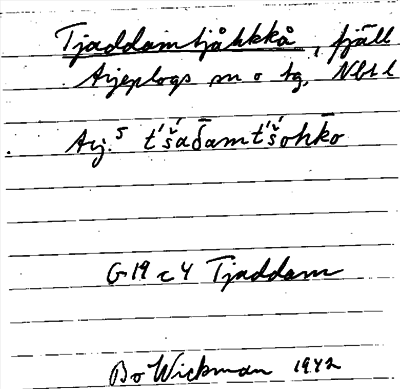 Tjaddamtjåhkkå, fjäll
Arjeplogs sn o tg, Nbtl
Arj.⁵ t́š́aδ̄amt́š́ohk̄o
G 19 c 4 Tjaddam
Bo Wickman 1942